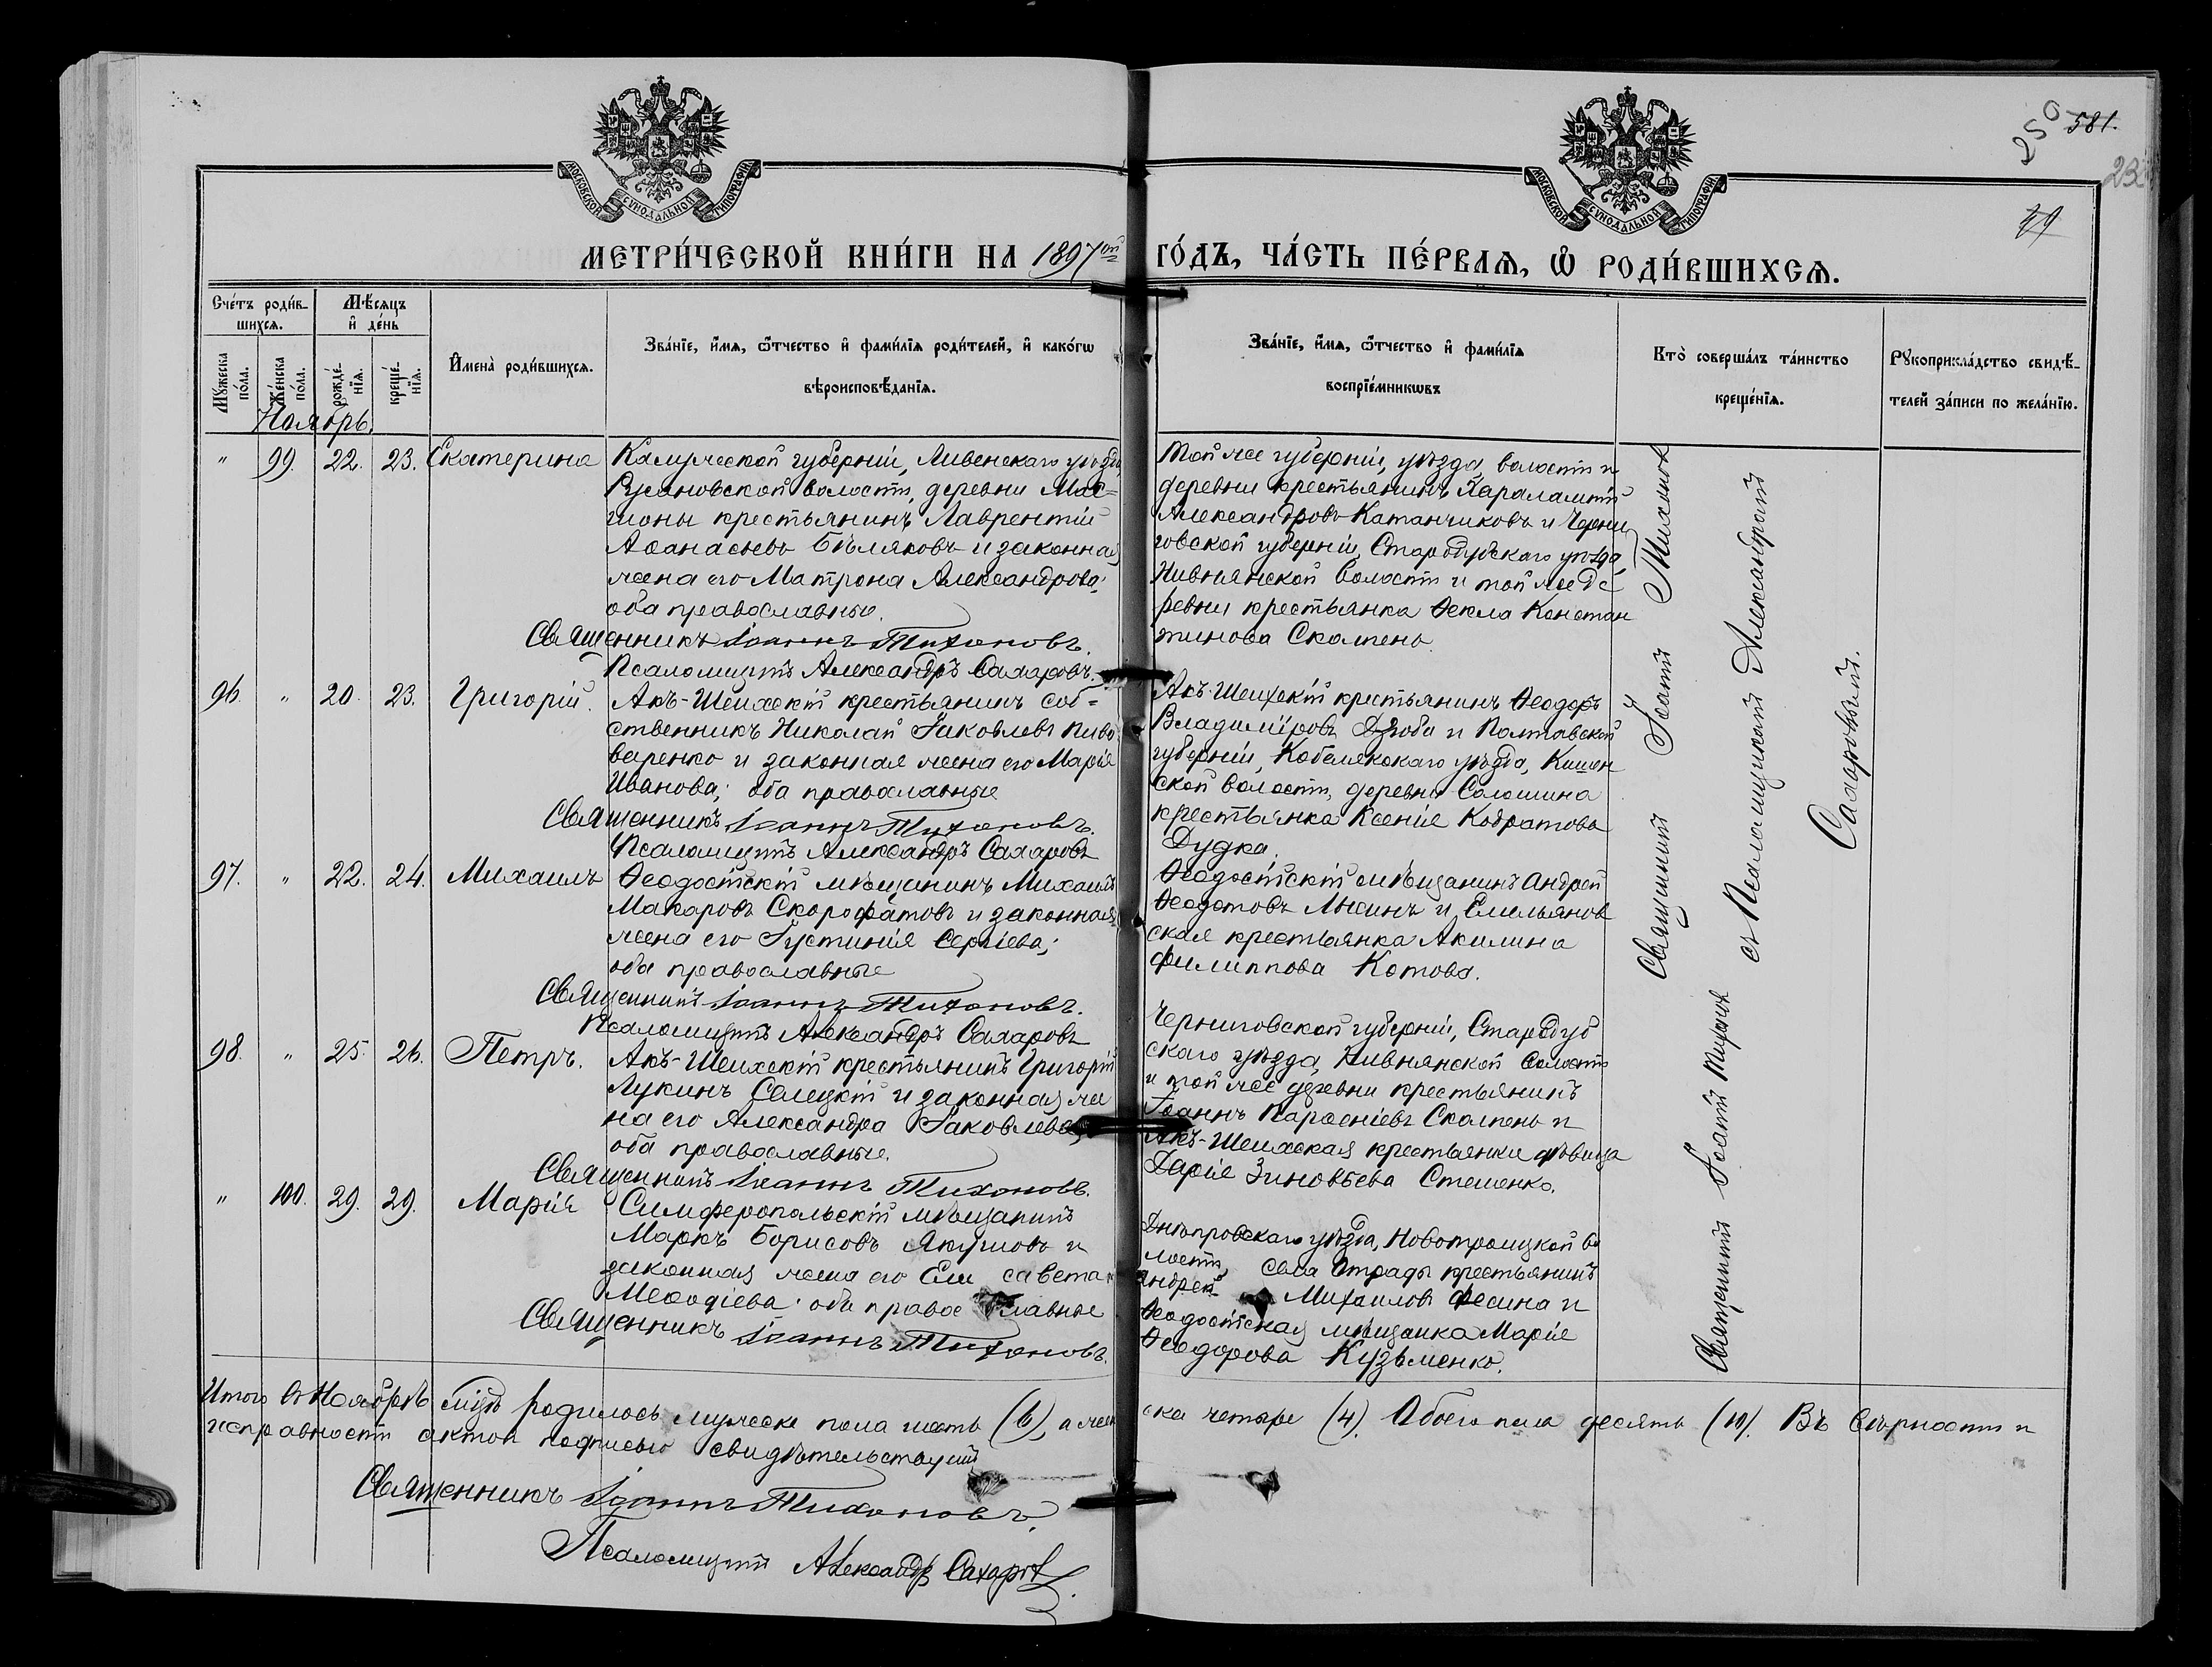 250 581.
23
49
МОСКОВСКОЙ СУНОДАЛЬНОЙ ТИПОГРАФІИ
МОСКОВСКОЙ СУНОДАЛЬНОЙ ТИПОГРАФІИ
МЕТРИ́ЧЕСКОЙ КНИ́ГИ НА 1897ой ГО́ДЪ, ЧА́СТЬ ПЕ́РВАѦ, Ѡ҆ РОДИ́ВШИХСѦ.
Сче́тъ роди́в-
шихсѧ.
Мѣ́сѧцъ
и҆ де́нь
Мꙋ́жеска
по́ла.
Же́нска
по́ла.
рожде́-
нїѧ.
креще́-
нїѧ.
И҆мена̀ роди́вшихсѧ.
Зва́нїе, и҆́мѧ, ѻ҆́тчество и҆ фами́лїѧ роди́телей, и҆ како́гѡ
вѣроисповѣ́данїѧ.
Зва́нїе, и҆́мѧ, ѻ҆́тчество и҆ фами́лїѧ
воспрїе́мникѡвъ
Кто̀ соверша́лъ та́инство
креще́нїѧ.
Рꙋкоприкла́дство свидѣ́-
телей за́писи по жела́нїю.
Ноябрь.
" 99. 22. 23. Екатерина
Калужской губерніи, Ливенскаго уѣзда,
Русановской волости, деревни
крестьянинъ Лаврентій
Аѳанасьевъ Бѣляковъ и законная
жена его Матрона Александрова;
оба православные.
Священникъ Іоаннъ Тихоновъ.
Псаломщикъ Александръ Сахаровъ.
Той же губерніи, уѣзда, волости и
деревни крестьянинъ Харалампій
Александровъ Катанчиковъ и Черни
говской губерніи, Стародубскаго уѣзда,
Нивнянской волости и той же де
ревни крестьянка Ѳекла Констан
тинова Скапень.
96. " 20. 23. Григорій.
Акъ-Шеихскій крестьянинъ соб-
ственникъ Николай Іаковлевъ Пиво
варенко и законная жена его Марія
Иванова; оба православные
Священникъ Іоаннъ Тихоновъ.
Псаломщикъ Александръ Сахаровъ
Акъ-Шеихскій крестьянинъ Ѳеодоръ
Владиміровъ Дзюба и Полтавской
губерніи, Кобелякскаго уѣзда, Кишен
ской волости, деревни Солошина
крестьянка Ксенія Кодратова
Дудка.
97. " 22. 24. Михаилъ
Ѳеодосійскій мѣщанинъ Михаилъ
Макаровъ Скорофатовъ и законная
жена его Іустинія Сергіева;
оба православные
Священникъ Іоаннъ Тихоновъ.
Псаломщикъ Александръ Сахаровъ
Ѳеодосійскій мѣщанинъ Андрей
Ѳеодотовъ Лысинъ и Емельянов
ская крестьянка Акилина
Филиппова Котова.
98. " 25. 26. Петръ.
Акъ-Шеихскій крестьянинъ Григорій
Лукинъ Селецкій и законная же
на его Александра Іаковлева;
оба православные.
Священникъ Іоаннъ Тихоновъ.
Черниговской губерніи, Стародуб
скаго уѣзда, Нивнянской волости
и той же деревни крестьянинъ
Іоаннъ Парѳеніевъ Скапень и
Акъ-Шеихская крестьянка дѣвица
Дарія Зиновьева Стешенко.
" 100. 29. 29. Марія
Симферопольскій мѣщанинъ
Маркъ Борисовъ Якушовъ и
законная жена его Ели савета
Меѳодіева; оба правос славные
Священникъ Іоаннъ Тихоновъ.
Днѣпровскаго уѣзда, Новотроицкой во
лости, села Отрады крестьянинъ
Андрей Михаиловъ Фесина и
Ѳеодосійская мѣщанка Марія
Ѳеодорова Кузьменко.
Священникъ Іоаннъ Тихоновъ
съ Псаломщикомъ Александромъ
Сахаровымъ.
Священникъ Іоаннъ Тихоновъ
Итого въ Ноябрѣ мѣс. родилось мужеска пола шесть (6), а жен ска четыре (4). Обоего пола десять (10). Въ вѣрности и
исправности актовъ подписью свидѣтельствуемъ
Священникъ Іоаннъ Тихоновъ.
Псаломщикъ Александръ Сахаровъ.